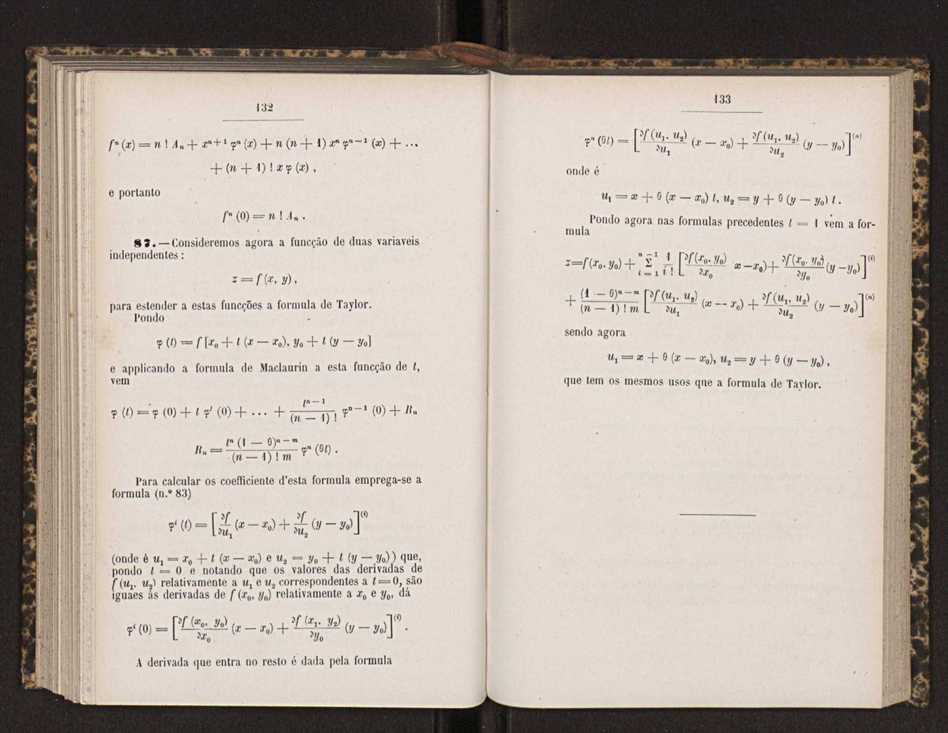 132
fⁿ (x) = n ! Aₙ + xⁿ⁺¹ φⁿ (x) + n (n + 1) xⁿ φⁿ⁻¹ (x) + ...
+ (n + 1) ! x φ (x) ,
e portanto
fⁿ (0) = n ! Aₙ .
87. — Consideremos agora a funcção de duas variaveis
independentes :
z = f (x, y) ,
para estender a estas funcções a formula de Taylor.
Pondo
φ (t) = f [x₀ + t (x — x₀), y₀ + t (y — y₀]
e applicando a formula de Maclaurin a esta funcção de t,
vem
φ (t) = φ (0) + t φ' (0) + ... + tⁿ⁻¹ / (n — 1) ! φⁿ⁻¹ (0) + Rₙ
Rₙ = tⁿ (1 — θ)ⁿ⁻ᵐ / (n — 1) ! m φⁿ (θt) .
Para calcular os coefficiente d'esta formula emprega-se a
formula (n.º 83)
φⁱ (t) = [∂f / ∂u₁ (x — x₀) + ∂f / ∂u₂ (y — y₀)]⁽ⁱ⁾
(onde é u₁ = x₀ + t (x — x₀) e u₂ = y₀ + t (y — y₀)) que,
pondo t = 0 e notando que os valores das derivadas de
f (u₁, u₂) relativamente a u₁ e u₂ correspondentes a t = 0, são
iguaes ás derivadas de f (x₀, y₀) relativamente a x₀ e y₀, dá
φⁱ (0) = [∂f (x₀, y₀) / ∂x₀ (x — x₀) + ∂f (x₁, y₂) / ∂y₀ (y — y₀)]⁽ⁱ⁾ .
A derivada que entra no resto é dada pela formula
133
φⁿ (θt) = [∂f (u₁, u₂) / ∂u₁ (x — x₀) + ∂f (u₁, u₂) / ∂u₂ (y — y₀)]⁽ⁿ⁾
onde é
u₁ = x + θ (x — x₀) t, u₂ = y + θ (y — y₀) t .
Pondo agora nas formulas precedentes t = 1 vem a for-
mula
z = f (x₀, y₀) + Σ (i = 1, n — 1) 1 / i ! [∂f (x₀, y₀) / ∂x₀ x — x₀) + ∂f (x₀, y₀) / ∂y₀ (y — y₀)]⁽ⁱ⁾
+ (1 — θ)ⁿ⁻ᵐ / (n — 1) ! m [∂f (u₁, u₂) / ∂u₁ (x — x₀) + ∂f (u₁, u₂) / ∂u₂ (y — y₀)]⁽ⁿ⁾
sendo agora
u₁ = x + θ (x — x₀), u₂ = y + θ (y — y₀) ,
que tem os mesmos usos que a formula de Taylor.